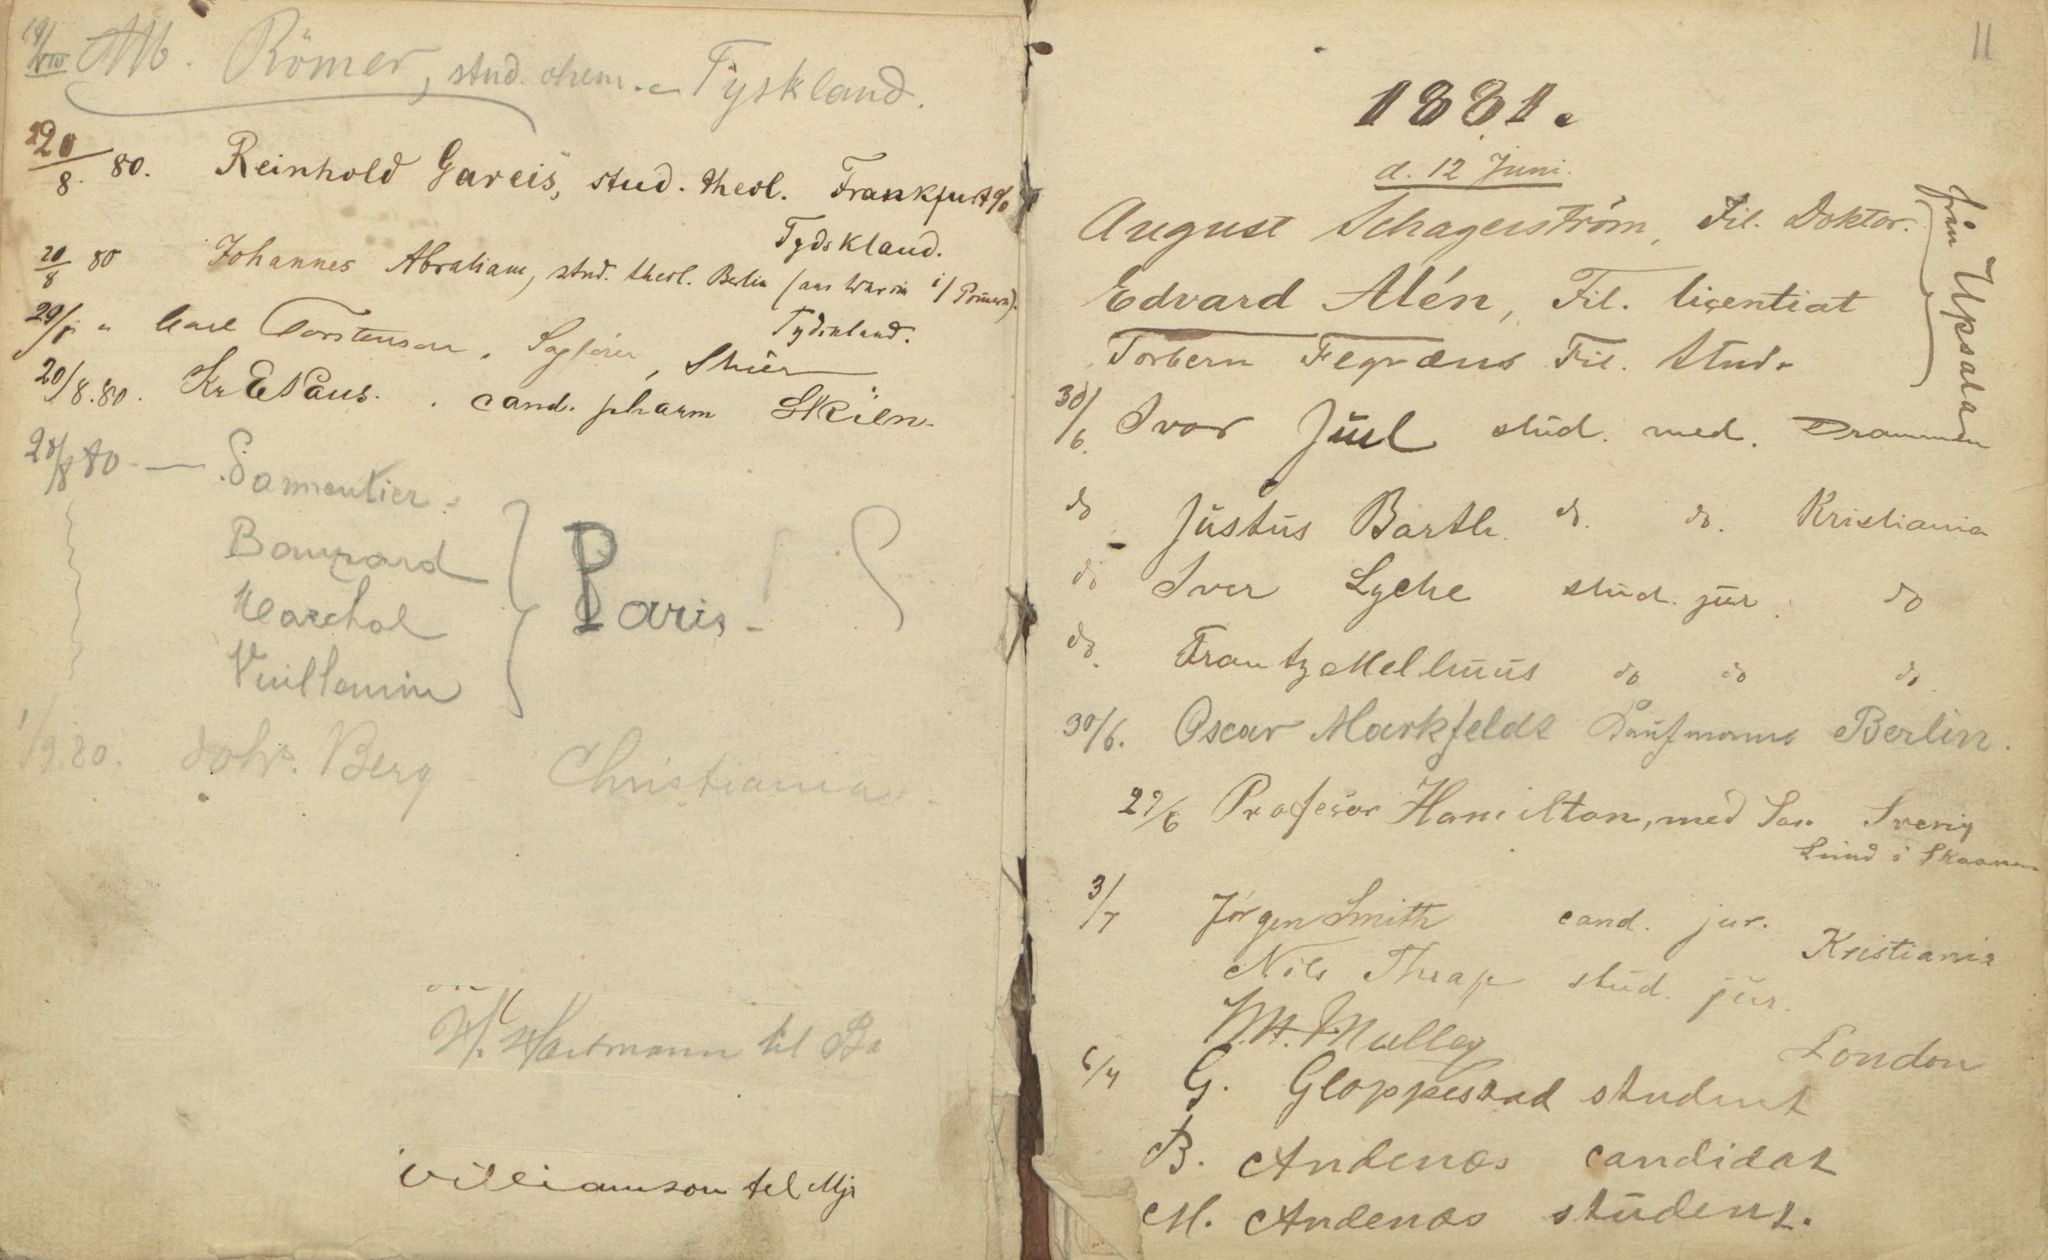 19/VIII Alb. Römer, stud. chem. Tyskland.
20/8. 80. Reinhold Gareis, stud. theol. Frankfurt a/O
Tydskland.
20/8 80 Johannes Abraham, stud. theol. Berlin (aus i/ Pomern).
Tydskland.
20/8 " Carl Torstenson, Sagfører, Skien
20/8.80. Kr E Paus. cand. pharm Skien.
28/8 80 — Parmentier
Bourzard
Marchal
Vuillemin
Paris
1/9.80. Johs. Berg Christiania.
H. Hartmann til
Villiamson tel Mjr
11
1881.
d. 12 Juni.
August Schagerström, Fil. Doktor.
Edvard Alén, Fil. licentiat
Torbern Fegræus Fil. Stud.
från Upsala
30/6. Ivar Juul stud. med. Drammen
do Justus Barth. do. do. Kristiania
do Iver Lyche stud. jur. do
do. Frantz Mellbuus do do do.
30/6. Oscar Markfeldt Kaufmann Berlin.
29/6 Profesor Hamilton, med Søn Sverig
Lund i Skaane
3/7 Jørgen Smith cand. jur.
Kristiania
Nils Thrap stud. jur.
London
G. Gloppestad student
B. Andenæs candidat
M. Andenæs student.